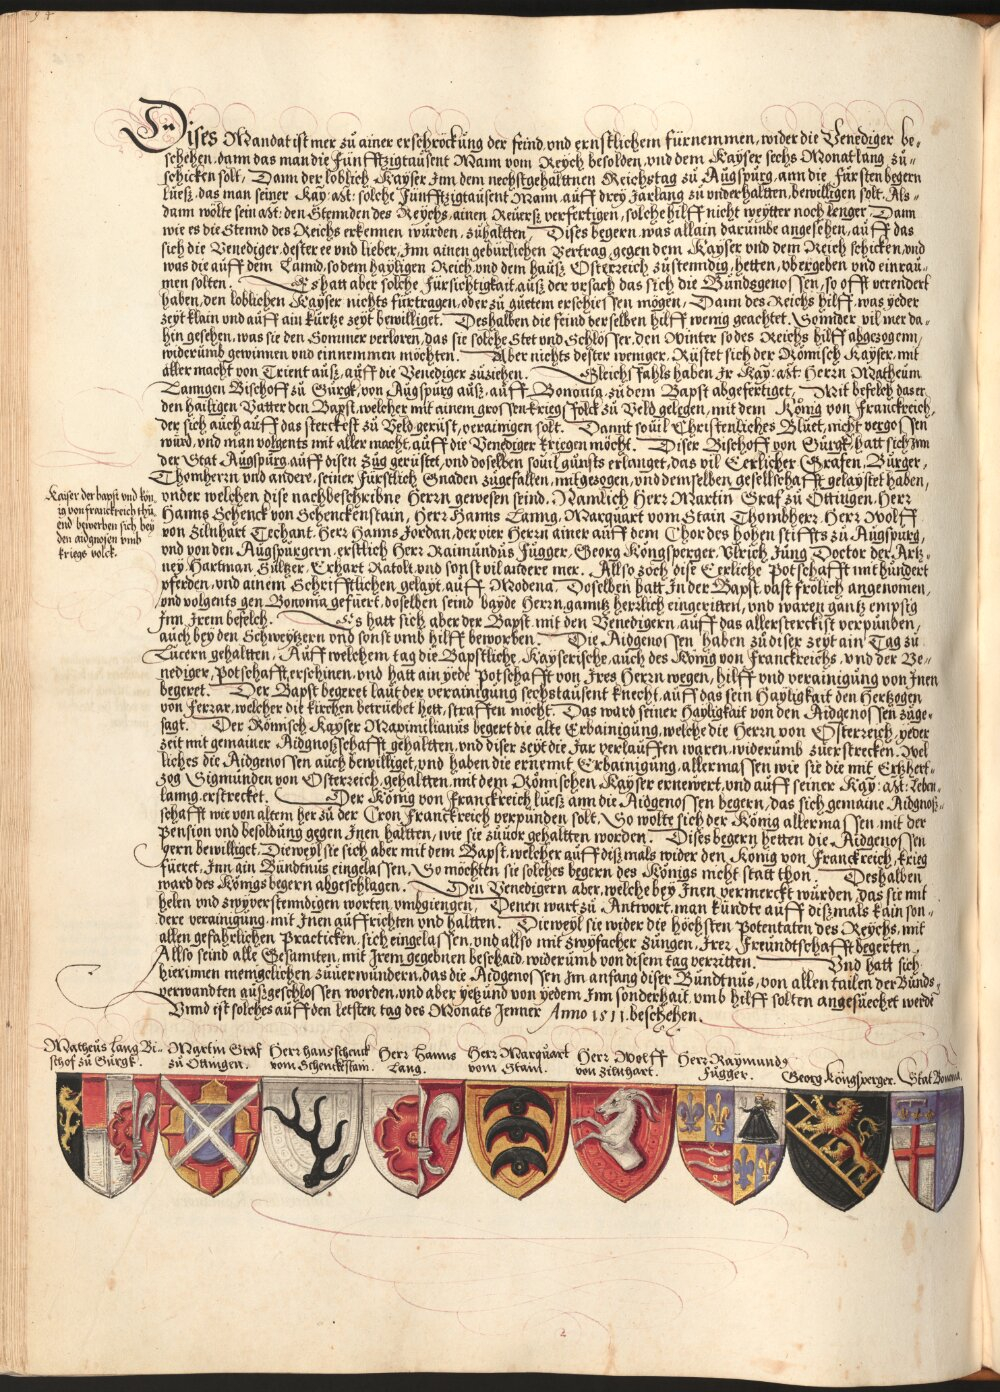 94
Dises Mandat ist mer zů ainer erschröckung der feind, vnd ernstlichem fürnemmen, wider die Venediger be-
schehen, dann das man die Fünfftzigtausent Mann vom Reych besolden, vnd dem Kayser sechs Monat lang zů-
schicken solt, Dann der loblich Kayser Inn dem nechstgehalttnen Reichstag zů Augspürg, ann die fürsten begern
liesz, das man seiner Kay: Mt: solche Fünfftzigtausent Mann, auff drey Jarlang zů vnderhaltten, bewilligen solt. Als-
dann wölte sein Mt: den Stennden des Reychs, ainen Reüersz verfertigen, solche hilff nicht weytter noch lenger, Dann
wie es die Stennd des Reichs erkennen würden, zůhaltten. Dises begern was allain darümbe angesehen, auff das
sich die Venediger, dester ee vnd lieber, Inn ainen gebürlichen Vertrag, gegen dem Kayser vnd dem Reich schicken, vnd
was die auff dem Lannd, so dem hayligen Reich, vnd dem hausz Osterreich zůstenndig, hetten, vbergeben vnd einraü-
men solten. Es hatt aber solche fürsichtigkait, ausz der vrsach das sich die Bündsgenossen, so offt verendert
haben, den loblichen Kayser nichts fürtragen, oder zů güettem erschiessen mögen, Dann des Reichs hilff, was yeder
zeyt klain vnd auff ain kürtze zeyt bewilliget. Deshalben die feind derselben hilff wenig geachtet, Sonnder vil mer da-
hin gesehen, was sie den Sommer verloren, das sie solche Stet vnd Schlösser, den Winter so des Reichs hilff abgezogenn,
widerümb gewinnen vnd einnemmen möchten. Aber nichts dester weniger, Rüstet sich der Römisch Kayser, mit
aller macht von Trient ausz, auff die Venediger zůziehen. Gleichsfahls haben Ir Kay: Mt: Herrn Matheum
Lanngen Bischoff zů Gürgk, von Augspürg ausz, auff Bononia, zů dem Bapst abgefertiget, Mit befelch das er
den hailigen Vatter den Bapst, welcher mit einem grossen kriegsfolck zů Veld gelegen, mit dem König von Franckreich,
der sich auch auff das sterckest zů Veld gerüst, verainigen solt. Damit souil Christenliches Blůet, nicht vergossen
würd, vnd man volgents mit aller macht, auff die Venediger kriegen möcht. Diser Bischoff von Gürgk, hatt sich Inn
der Stat Augspürg, auff disen Züg gerüstet, vnd doselben souil günsts erlanget, das vil Eerlicher Grafen, Bürger,
Thomherrn vnd andere, seiner Fürstlich Gnaden zůgefallen, mitgezogen, vnd demselben gesellschafft gelaystet haben,
vnder welchen dise nachbeschribne Herrn gewesen seind. Nämlich Herr Martin Graf zů Ottingen, Herr
Hanns Schenck von Schenckenstain, Herr Hanns Lanng, Marquart vom Stain Thombherr, Herr Wolff
von Zilnhart Techant, Herr Hanns Jordan, der vier Herrn ainer auff dem Chor des hohen stiffts zů Augspürg,
vnd von den Augspürgern, erstlich Herr Raimündüs Függer, Georg Köngsperger, Vlrich Jüng Doctor der Artz-
ney, Hartman Sültzer, Erhart Ratolt, vnd sonst vil andere mer. Allso zoch dise Eerliche Potschafft mit hündert
pferden, vnd ainem Schrifftlichen gelayt, auff Modena. Doselben hatt In der Bapst, vast frölich angenomen,
vnd volgents gen Bononia gefüert, doselben seind bayde Herrn, ganntz herrlich eingeritten, vnd waren gantz empsig
Inn Irem befelch. Es hatt sich aber der Bapst, mit den Venedigern, auff das allersterckist verpünden,
auch bey den Schweytzern vnd sonst vmb hilff beworben. Die Aidgenossen haben zů diser zeyt ain Tag zů
Lücern gehaltten, Auff welchem tag die Bäpstliche, Kayserische, auch des König von Franckreichs, vnd der Ve-
nediger, Potschafft, erschinen, vnd hatt ain yede Potschafft von Ires Herrn wegen, hilff vnd verainigung von Inen
begeret. Der Bapst begeret laüt der verainigung sechstausent knecht, auff das sein Hayligkait den Hertzogen
von Ferrar, welcher die kirchen betrüebet hett, straffen möcht. Das ward seiner Hayligkait von den Aidgenossen züge-
sagt. Der Römisch Kayser Maximilianus begert die alte Erbainigüng, welche die Herrn von Osterreich, yeder
zeit mit gemainer Aidgnoszschafft gehaltten, vnd diser zeyt die Jar verlauffen waren, widerümb zůerstrecken. Wel-
liches die Aidgenossen auch bewilliget, vnd haben die ernennt Erbainigüng, allermassen wie sie die mit Ertzhert-
zog Sigmünden von Osterreich, gehaltten, mit dem Römischen Kayser ernewert, vnd auff seiner Kay: Mt: Leben-
lanng, erstrecket. Der König von Franckreich lüesz ann die Aidgenossen begern, das sich gemaine Aidgnosz-
schafft wie von altem her zů der Cron Franckreich verpünden solt, So wolte sich der König allermassen mit der
Pension vnd besoldüng gegen Inen haltten, wie sie züüor gehaltten worden. Dises begern hetten die Aidgenossen
gern bewilliget, Dieweyl sie sich aber mit dem Bapst, welcher auff disz mals wider den König von Franckreich, krieg
füeret, Inn ain Bündtnüs eingelassen, So möchten sie solches begern des Königs nicht statt thon. Deshalben
ward des Königs begern abgeschlagen. Den Venedigern aber, welche bey Inen vermerckt würden, das sie mit
helen vnd zwyverstenndigen worten, vmbgiengen, Denen wart zů Antwort, man kündte auff diszmals kain son-
dere verainigüng mit Inen auffrichten vnd haltten. Dieweyl sie wider die höchsten Potentaten des Reychs, mit
allen gefahrlichen Practicken, sich eingelassen, vnd allso mit zwyfacher züngen, Irer Freündtschafft begerten.
Allso seind alle Gesannten, mit Irem gegebnen beschaid, widerümb von disem tag verritten. Vnd hatt sich
hierinnen menngclichen züuerwündern, das die Aidgenossen Im anfang diser Bündtnüs, von allen tailen der Bünds-
verwandten auszgeschlossen worden, vnd aber yetzünd von yedem Inn sonderhait, vmb hilff solten angesüechet werde
Vnnd ist solches auff den letsten tag des Monats Jenner Anno 1511. beschehen.
Kaiser der bapst vnd kön-
ig von franckreich thü-
end bewerben sich bey
den aidgnosen vmb
kriegs volck.
Matheüs Lang Bi-
schof zů Gürgk.
Martin Graf
zů Ottingen.
Herr hans schenck
vom Schenckstain.
Herr Hanns
Lang.
Herr Marquart
vom Stain.
Herr Wolff
von Zilnhart.
Herr Raymunds
Függer.
Georg Köngsperger.
Stat Bononia.
2